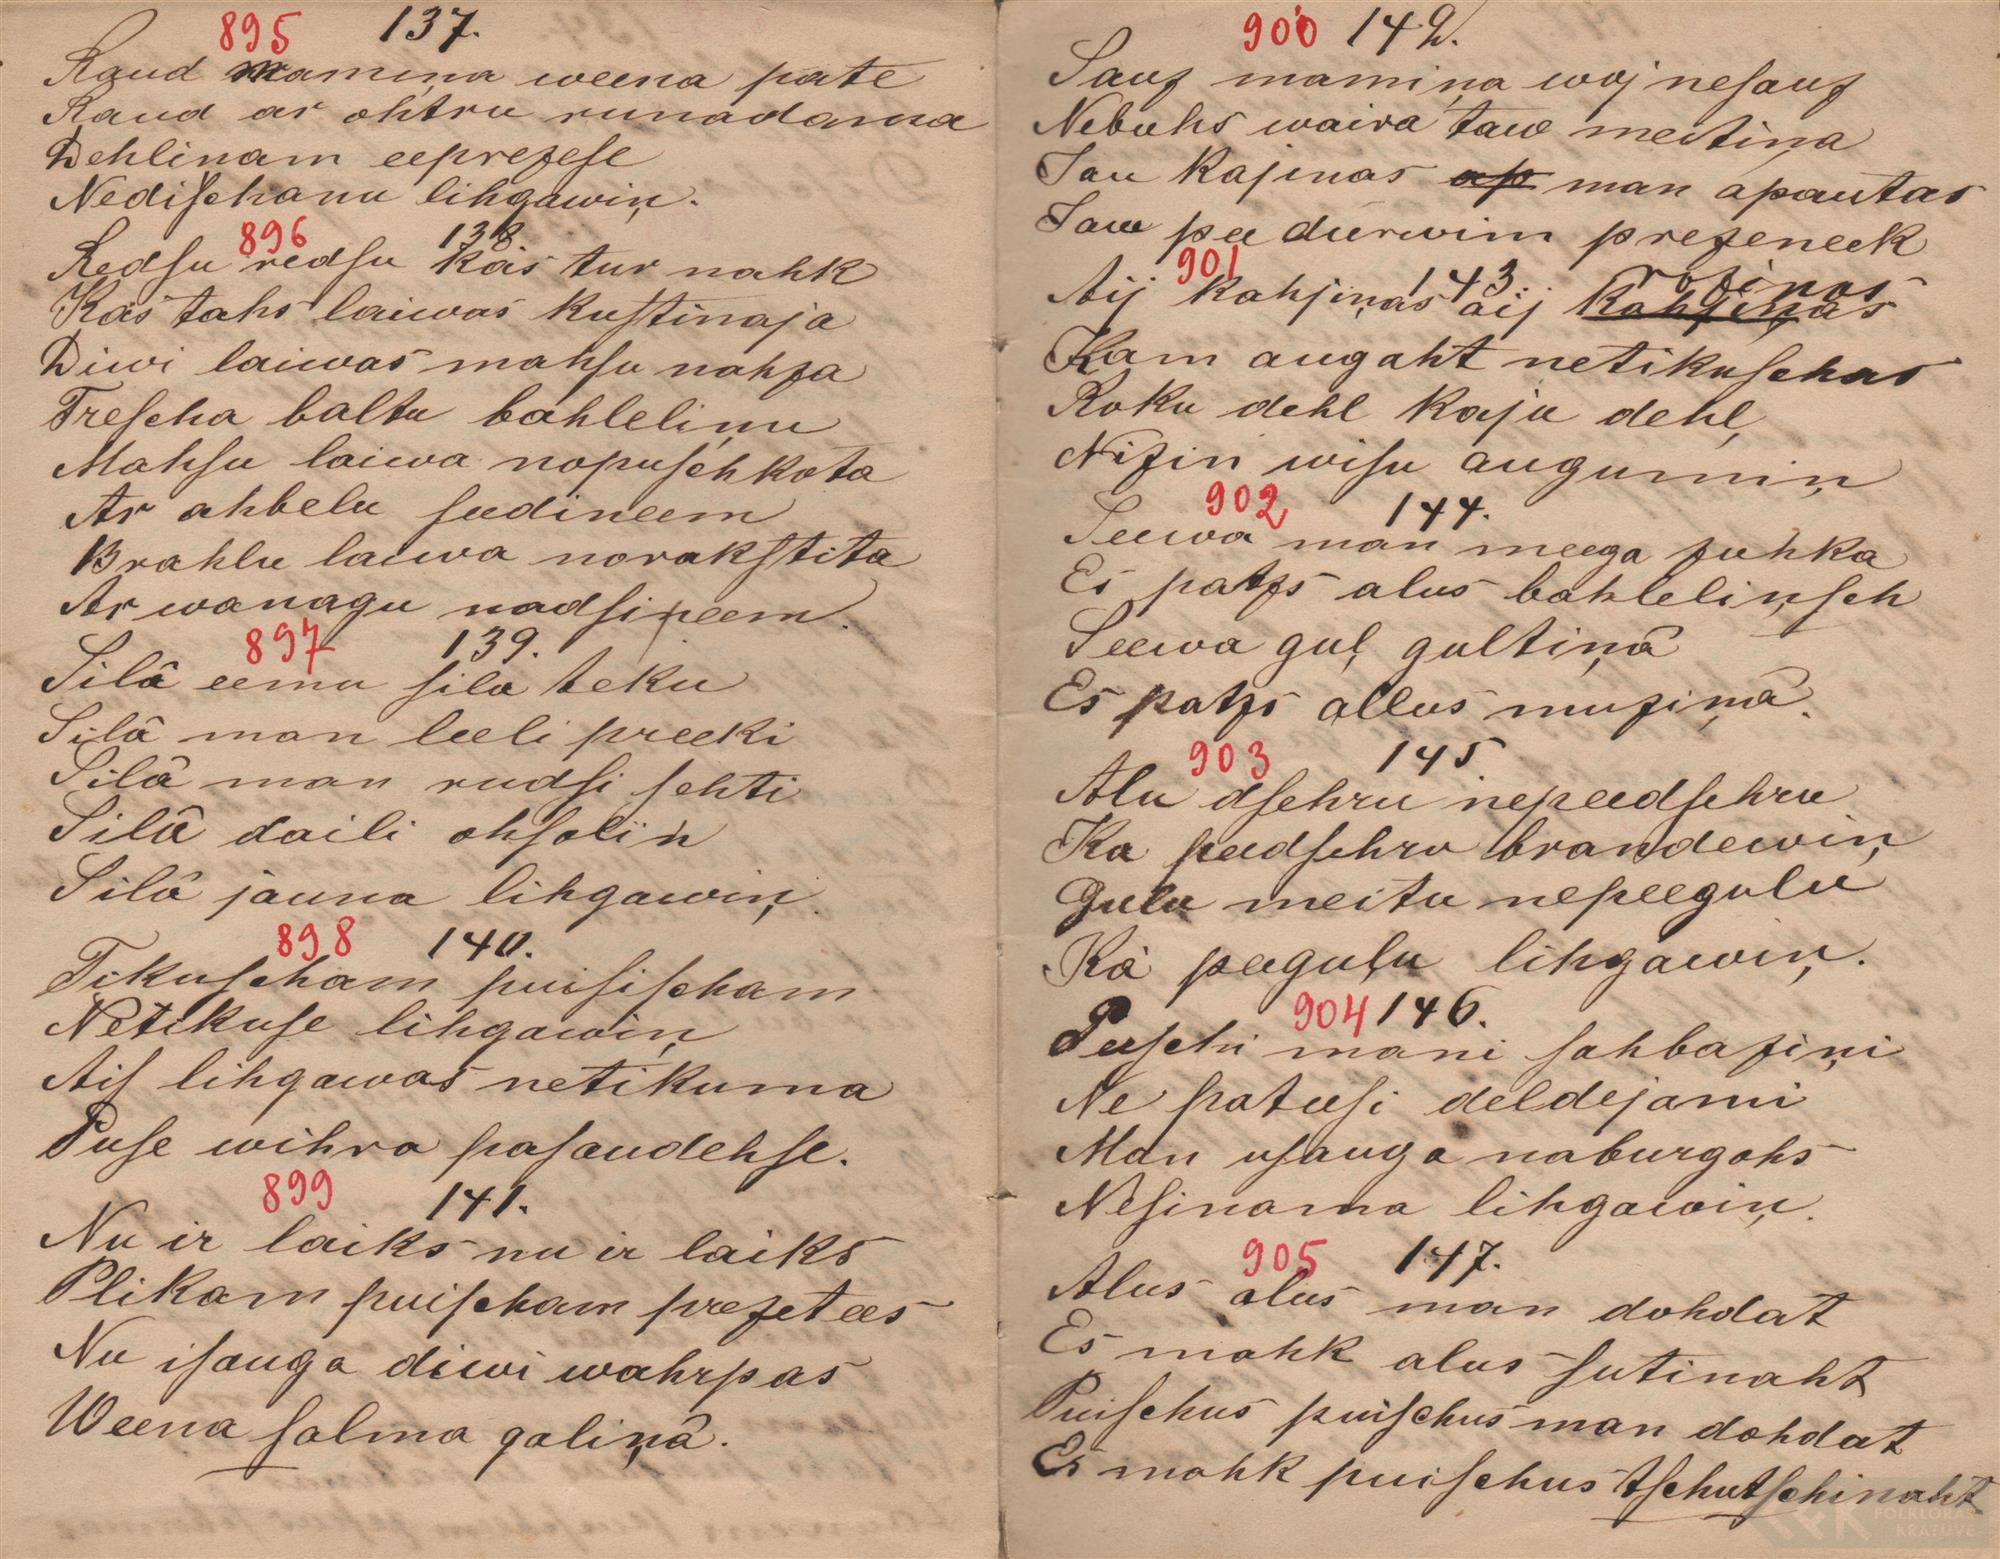 895 137.
Raud mamiņa weena pate
Raud ar ohtru runadama
Dehlinam eeprezese
Nedischanu lihgawiņ.
896 138.
Redsu redsu kas tur nahk
Kas tahs laiwas kustinaja
Diwi laiwas mahsu nahza
Trescha baltu bahleliņu
Mahsu laiwa nopuschkota
Ar ahbelu seedineem
Brahlu laiwa norakstita
Ar wanagu nadsineem.
897 139.
Silâ eemu sila teku
Silâ man leeli preeki
Silâ man rudsi sehti
Silâ daili ohsoliņ
Silâ jauna lihgawiņ.
898 140.
Tikuscham puisischam
Netikuse lihgawiņ
Ais lihgawas netikuma
Puse wihra pasaudehse.
899 141.
Nu ir laiks nu ir laiks
Plikam puischam prezetees
Nu isauga diwi wahrpas
Weena salma galiņâ.
900 142.
Sauz mamiņa woj nesauz
Nebuhs waira taw meitiņa
Tau kajinas ap man apautas
Taw pee durwim prezeneek
901 143.
Aij kahjiņas aij kahjiņas rozinas
Kam augaht netikuschas
Roku dehl kaju dehl,
Nizin wisu augumiņ
902 144.
Seewa man meega zuhka
Es patzs alus bahleliņsch
Seewa guļ gultiņâ
Es patzs allus muziņâ.
903 145
Alu dsehru nepeedsehru
Ka peedsehru brandewiņ
Gulu meitu nepeegulu
Kà peeguļu lihgawiņ.
904 146.
Peeschi mani sahbaziņi
Ne pateesi deldejami
Man usauga naburgohs
Nesinama lihgawiņ.
905 147.
Alus alus man dohdat
Es mahk alus sutinaht
Puischus puischus man dohdat
Es mahk puischus tschutschinaht
FOLKLORAS
KRĀTUVE